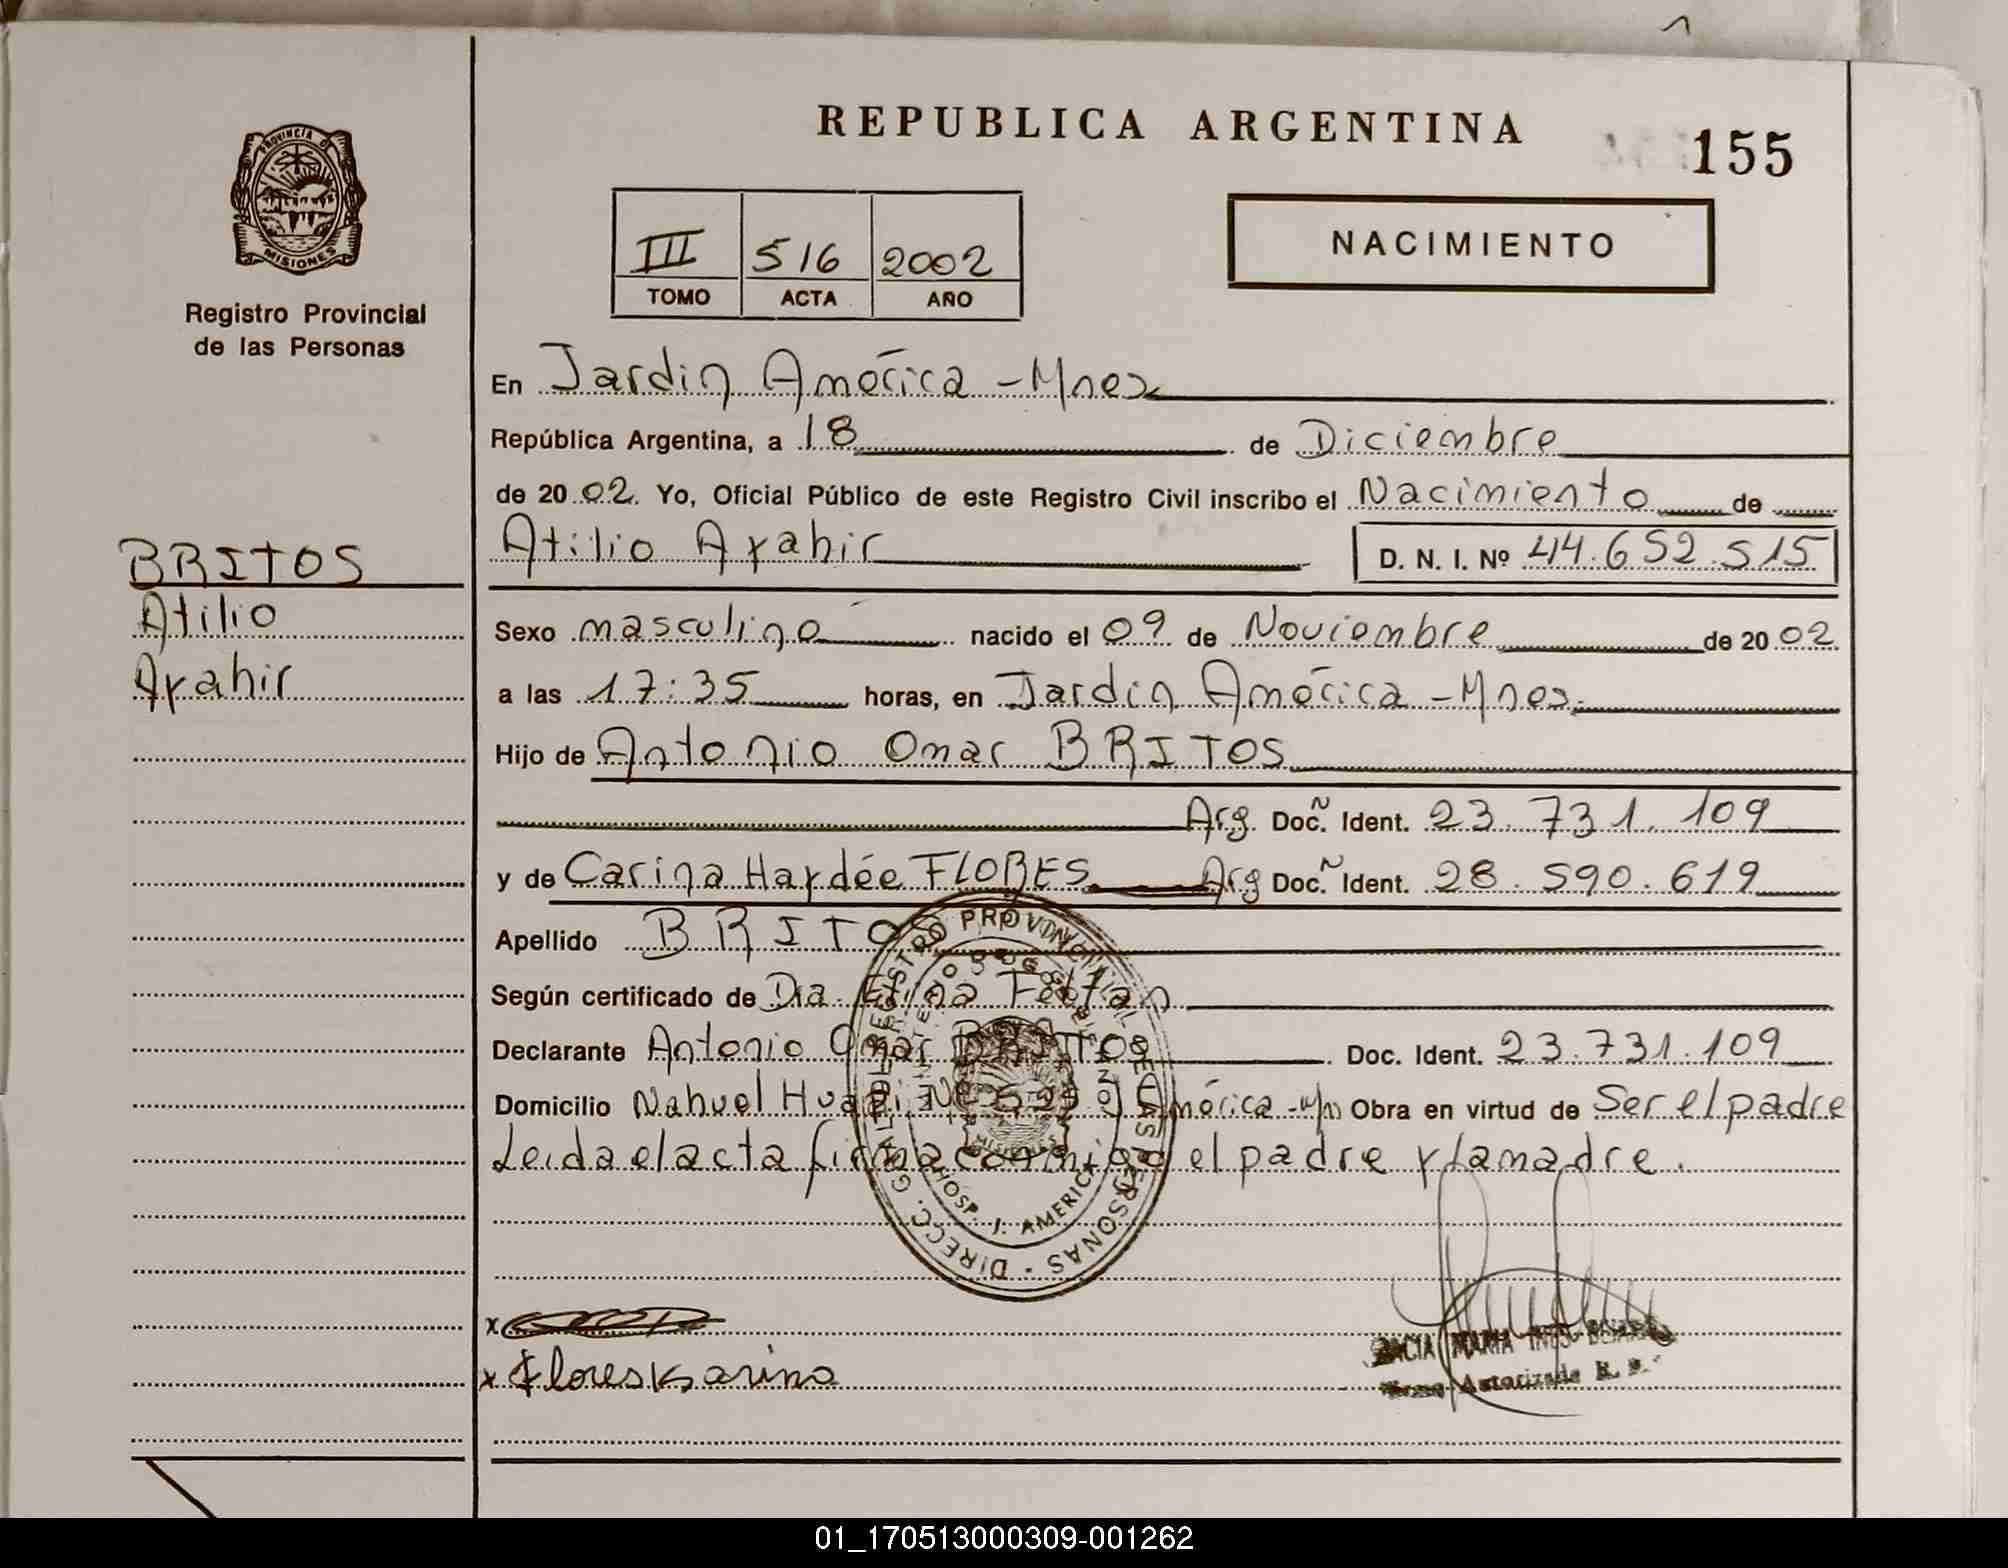 REPUBLICA ARGENTINA
155
PROVINCIA DE
MISIONES
Registro Provincial
de las Personas
III 516 2002
TOMO ACTA AÑO
NACIMIENTO
En Jardin América - Mnes
República Argentina, a 18 de Diciembre
de 20 02. Yo, Oficial Público de este Registro Civil inscribo el Nacimiento de
Atilio Ayahir D. N. I. Nº 44.652.515
BRITOS
Atilio
Ayahir
Sexo masculino nacido el 09 de Noviembre de 20 02
a las 17:35 horas, en Jardin América - Mnes.
Hijo de Antonio Omar BRITOS
Arg. Doc. Ident. 23.731.109
y de Carina Haydée FLORES Arg Doc. Ident. 28.590.619
Apellido BRITOS
Según certificado de Dra.
Declarante Antonio Omar BRITOS Doc. Ident. 23.731.109
Domicilio Nahuel Huapi Nº América - Mn Obra en virtud de Ser el padre
Leida el acta firma conmigo el padre y la madre.
DIRECC. GRAL. DE REGISTRO PROVINCIAL DE LAS PERSONAS
MISIONES
HOSP. J. AMERICA
x
x Flores Karina
MARIA INES
Autorizada R. P.
01_170513000309-001262